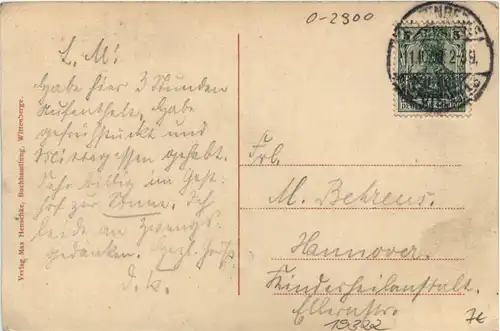 0-2900
L. M!
Habe hier 3 Stunden
Aufenthalt, habe
gefrühstückt und
Mittagessen gehabt.
Sehr billig im Gast-
hof zur Sonne. Ich
leide an Zwangs-
gedanken. Herzl. Grüße
Verlag Max Henschke, Buchhandlung, Wittenberge.
Frl.
M. Behrens.
Hannover.
Kinderheilanstalt.
Ellernstr.
19322
7€